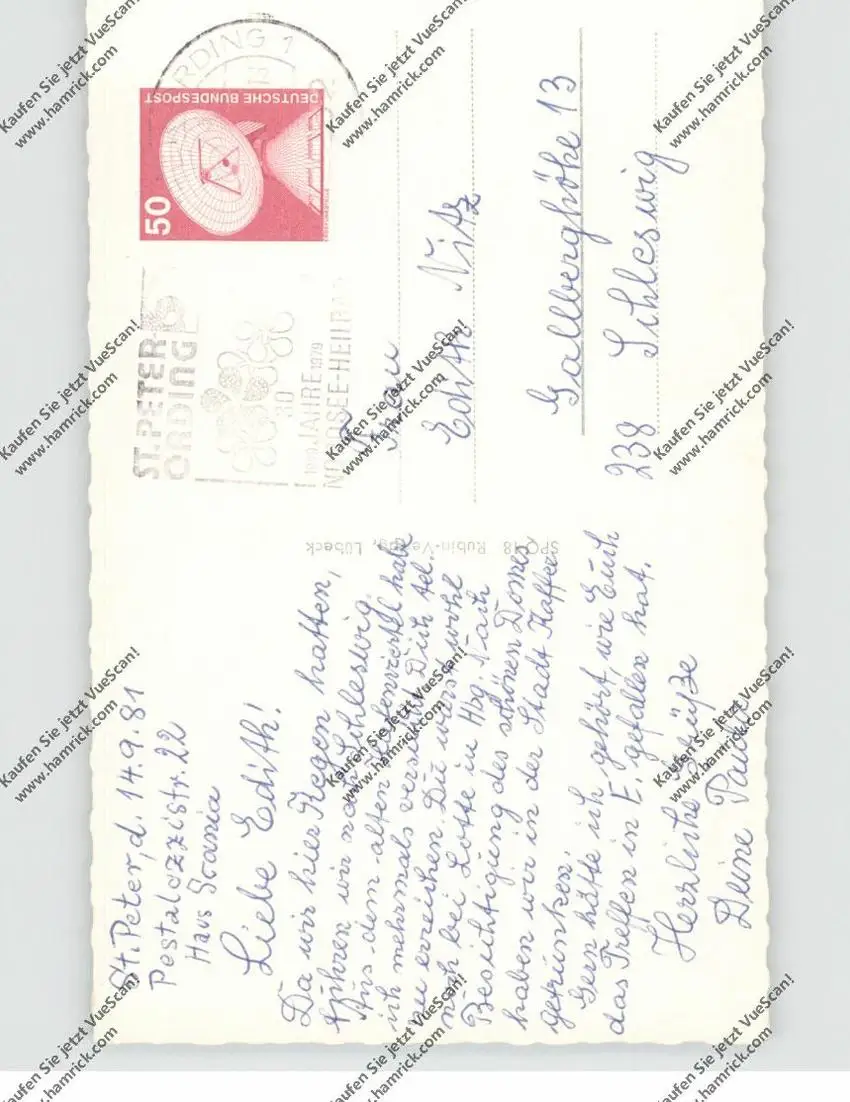 St. Peter, d. 14.9.81
Pestalozzistr. 22
Haus
Liebe Edith!
Da wir hier Regen hatten,
fuhren wir nach Schleswig.
Aus dem alten habe
ich mehrmals versucht Dich tel.
zu erreichen. Du warst wohl
noch bei Lotte in Hbg. Nach
Besichtigung des schönen Domes
haben wir in der Stadt Kaffee
getrunken.
Gern hätte ich gehört wie Euch
das Treffen in E. gefallen hat.
Herzliche Grüße
Deine Paula
SPO 18 Rubin-Verlag, Lübeck
RDING 1
DEUTSCHE BUNDESPOST
50
ST. PETER-
ORDING
30 JAHRE 1979
NORDSEE-HEILBAD
Frau
Edith Nitz
Gallberghöhe 13
238 Schleswig
Kaufen Sie jetzt VueScan!
www.hamrick.com